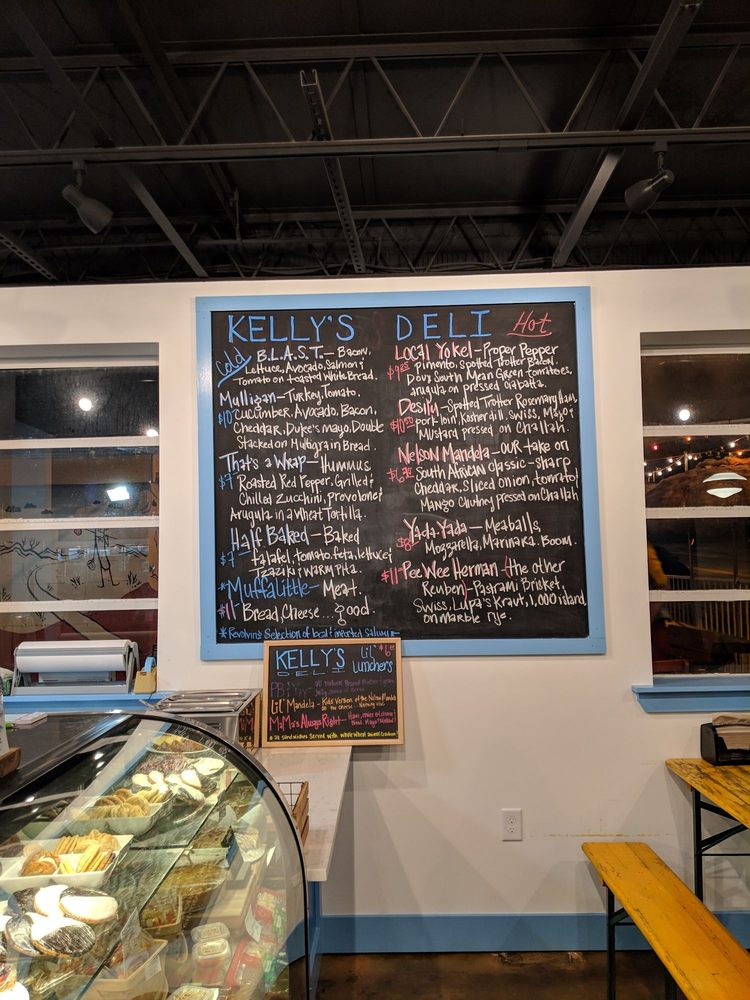 KELLY'S DELI
Cold
B.L.A.S.T. - Bacon,
Lettuce, Avocado, Salmon &
Tomato on toasted White Bread.
Mulligan - Turkey, Tomato,
$10 Cucumber, Avocado, Bacon,
Cheddar, Duke's mayo, Double
Stacked on Multigrain Bread.
That's a Wrap - Hummus
$7 Roasted Red Pepper, Grilled &
Chilled Zucchini, Provolone &
Arugula in a Wheat Tortilla.
Half Baked - Baked
$7 falafel, tomato, feta, lettuce &
Tzaziki & warm pita.
*Muffalittle - Meat.
$11 Bread, Cheese.... good.
*Revolving Selection of local & imported Salumi
Hot
Local Yokel - Proper Pepper
Pimento, Spotted Trotter Bacon,
Dove South Mean Green tomatoes,
arugula on pressed Ciabatta.
Desilu - Spotted Trotter Rosemary Ham,
pork loin, Kosher dill, Swiss, Mayo &
Mustard pressed on Challah
Nelson Mandela - OUR take on
South African classic - sharp
Cheddar, Sliced onion, tomato &
Mango Chutney pressed on Challah
Yada Yada - Meaballs,
$8 Mozzarella, Marinara. Boom.
$11 Pee Wee Herman - (the other
Reuben) - Pastrami Brisket,
Swiss, Lupa's Kraut, 1,000 island
on marble rye.
KELLY'S Lil'
DELI Lunchers
PB
Lil' Mandela - Kids Version of the Nelson Mandela
MaMa's Always Right - Ham,